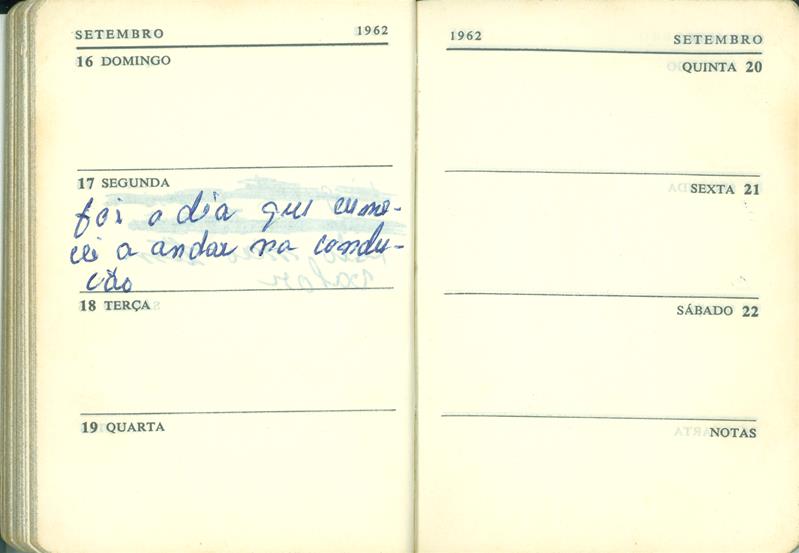 SETEMBRO 1962
16 DOMINGO
17 SEGUNDA
foi o dia que eume-
cei a andar na condu-
cão
18 TERÇA
19 QUARTA
1962 SETEMBRO
QUINTA 20
SEXTA 21
SÁBADO 22
NOTAS